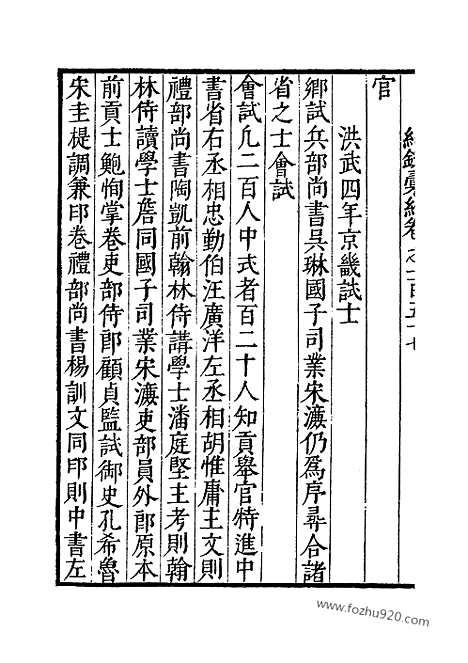 紀錄彙編卷之一百五十七
官
洪武四年京畿試士
鄉試兵部尚書吳琳國子司業宋濂仍爲序尋合諸
省之士會試
會試凡二百人中式者百二十人知貢舉官特進中
書省右丞相忠勤伯汪廣洋左丞相胡惟庸主文則
禮部尚書陶凱前翰林侍講學士潘庭堅主考則翰
林侍讀學士詹同國子司業宋濂吏部員外郎原本
前貢士鮑恂掌卷吏部侍郎顧貞監試御史孔希魯
宋圭楗調兼印卷禮部尚書楊訓文同印則中書左
www.fozhu920.com